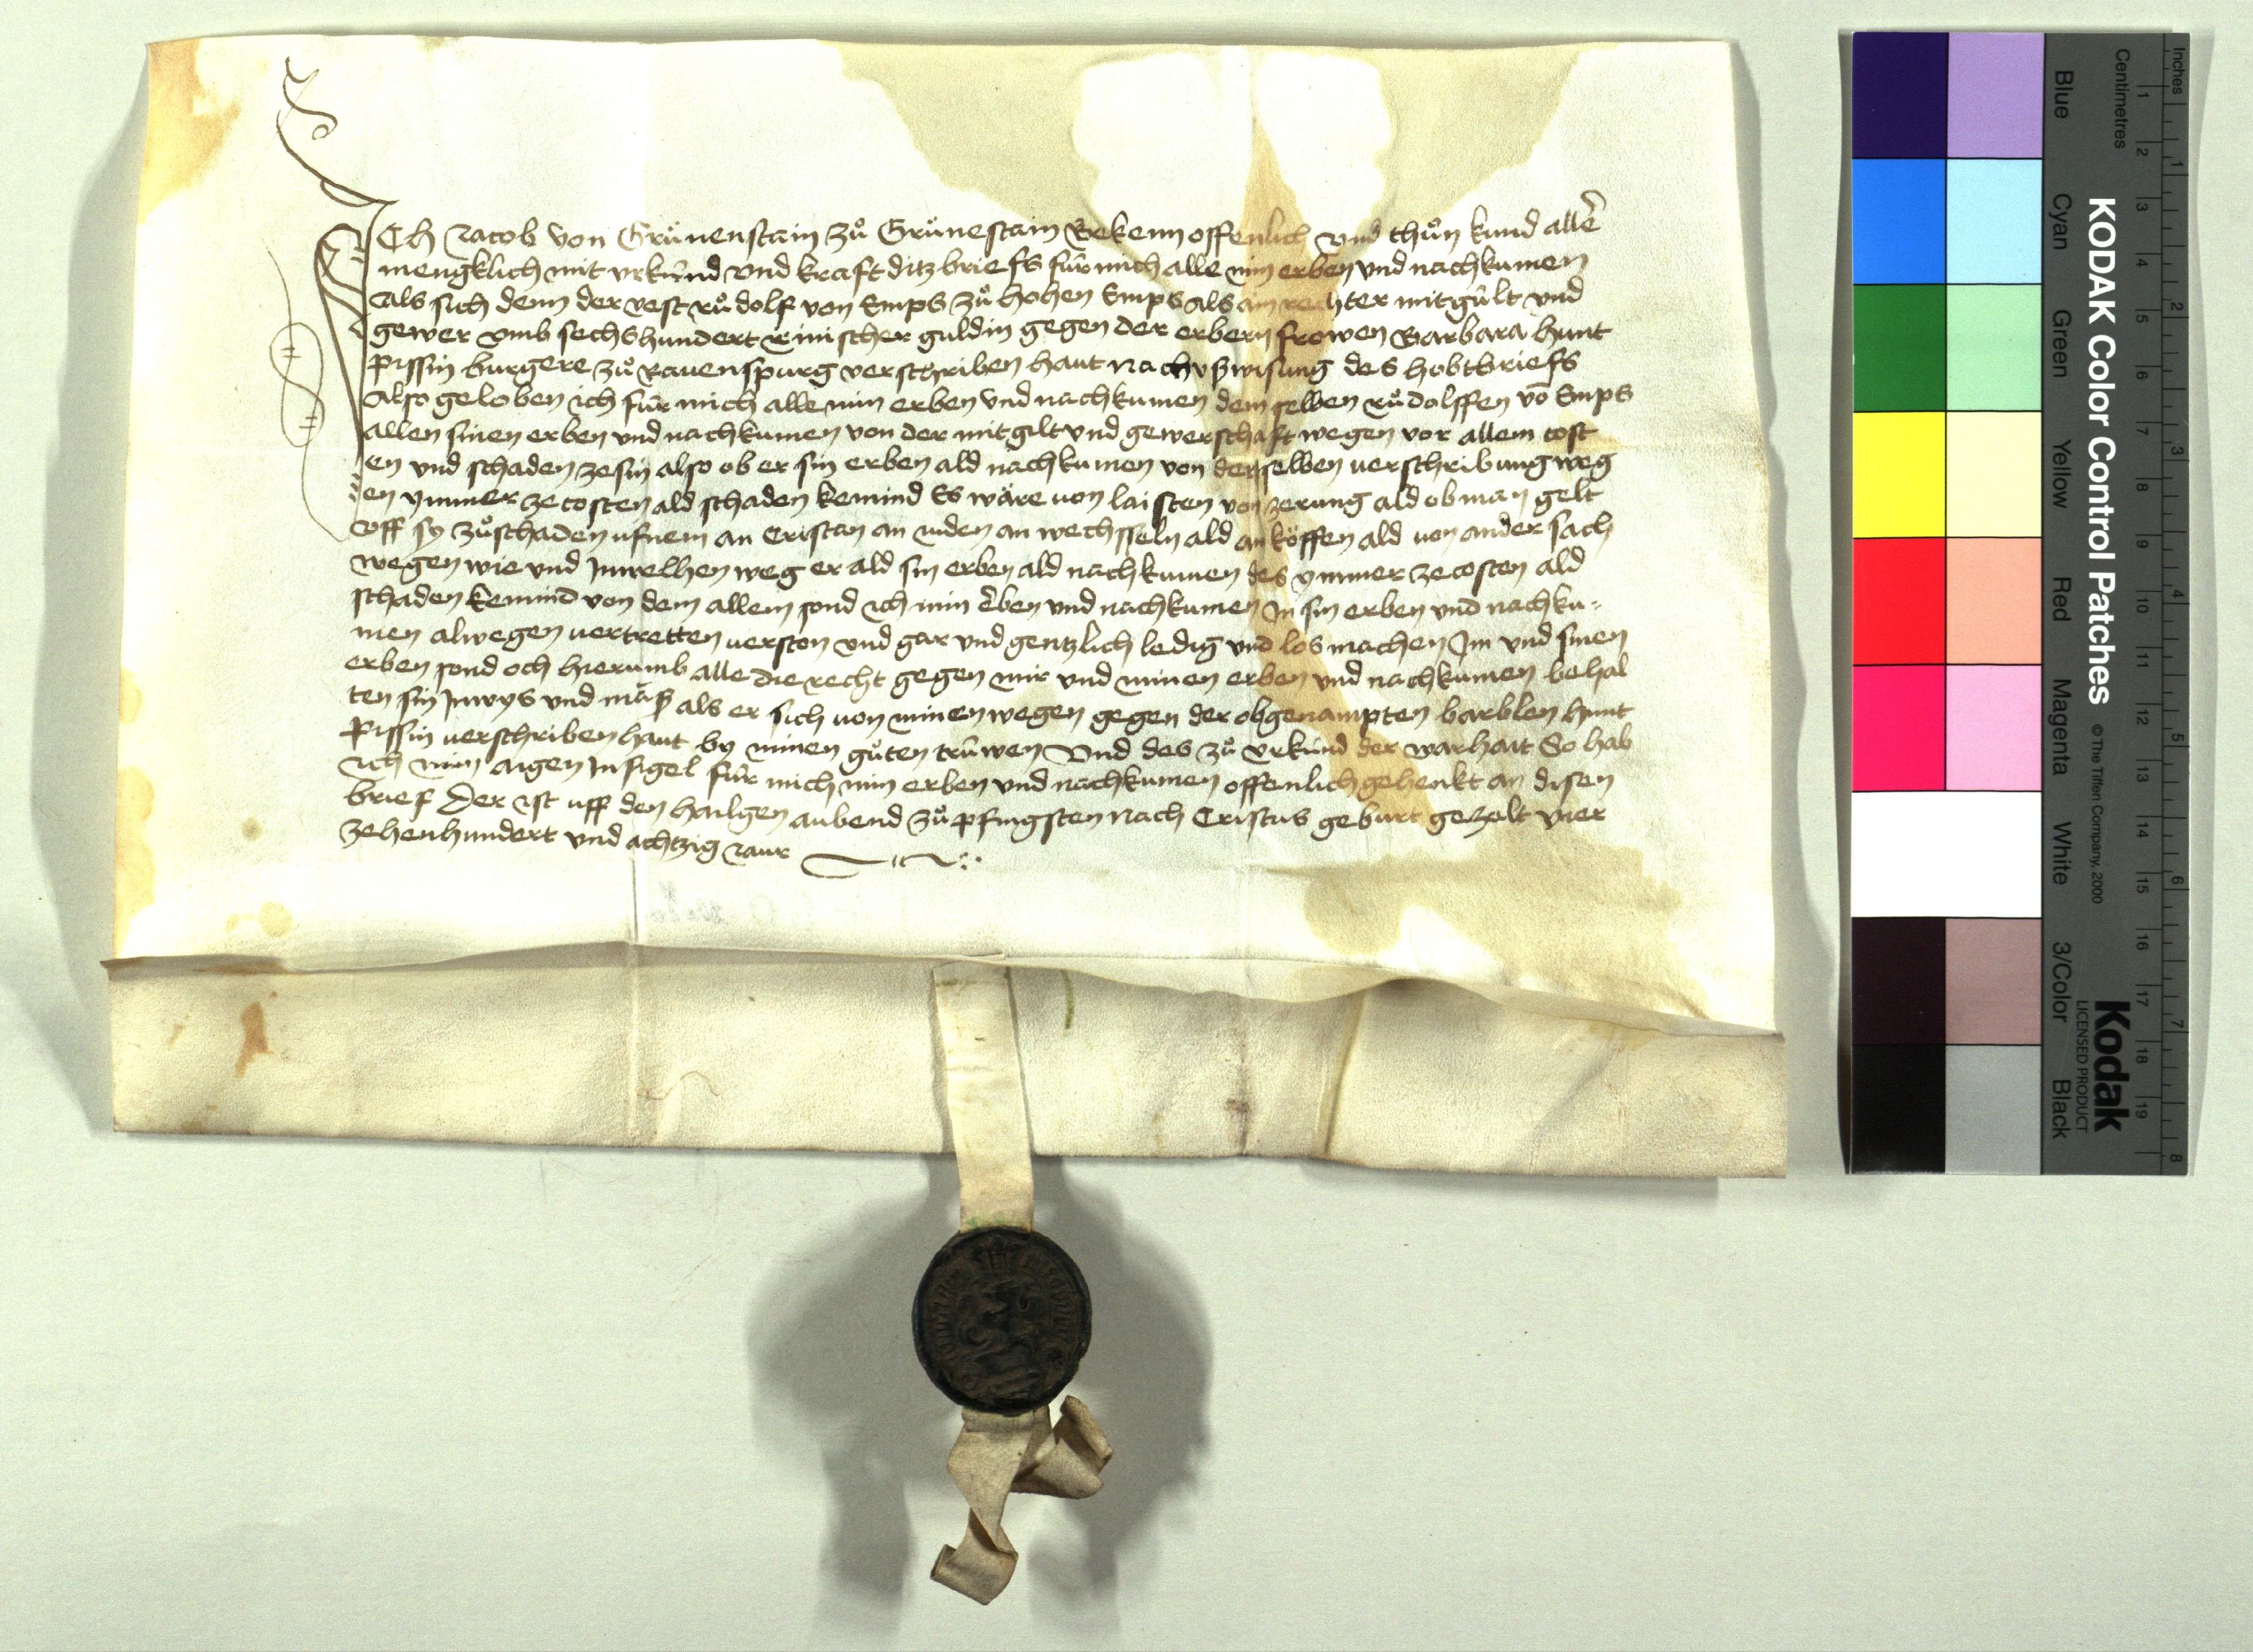 ICh Jacob von Grůnenstain zů Grůnestain Bekenn offenlich vnd thůn kund aller
mengklich mit vrkund vnd kraft ditz briefs für mich alle min erben vnd nachkumen
Als sich denn der vest Růdolf von Emps zů hohen Emps als ain rechter mitgült vnd
gewer vmb sechshundert rinischer guldin gegen der erbern frowen Barbara Hunt
Pissin burgere zů Rauenspurg verschriben haut nach vßwisung des hobtbriefs
Also geloben ich für mich alle min erben vnd nachkumen dem selben růdolffen vō Emps
allen sinen erben vnd nachkumen von der mitgilt vnd gewerschaft wegen vor allem cost
en vnd schaden ze sin also ob er sin erben ald nachkumen von der selben uerschribung weg
en ymmer ze costen ald schaden kemind Es wäre von laisten von zerung ald ob man gelt
vff sy zů schaden ufnem an Cristan an juden an wechsseln ald an köffen ald von ander sach
wegen wie vnd Jnwelhen weg er ald sin erben ald nachkumen des ymmer ze costen ald
schaden kemind von dem allem sond ich min erben vnd nachkumen in sin erben vnd nachku-
men alwegen uertretten uerston vnd gar vnd gentzlich ledig vnd los machen Jm vnd sinen
erben sond och hierumb alle die recht gegen mir vnd minen erben vnd nachkumen behal
ten sin Jnwys vnd mäß als er sich von minen wegen gegen der obgenampten barblen hunt
Pissin uerschriben haut by minen gůten trüwen Vnd des zů vrkund der warhait So hab
ich min aigen Jnsigel für mich min erben vnd nachkumen offenlich gehenkt an disen
brief Der ist uff den hailgen aubend zů pfingsten nach Cristus geburt gezalt vier
zehenhundert vnd achtzig Jaur
KODAK Color Control Patches
© The Tiffen Company, 2000
Kodak
LICENSED PRODUCT
Inches
Centimetres
1 2 3 4 5 6 7 8
1 2 3 4 5 6 7 8 9 10 11 12 13 14 15 16 17 18 19
Blue
Cyan
Green
Yellow
Red
Magenta
White
3/Color
Black